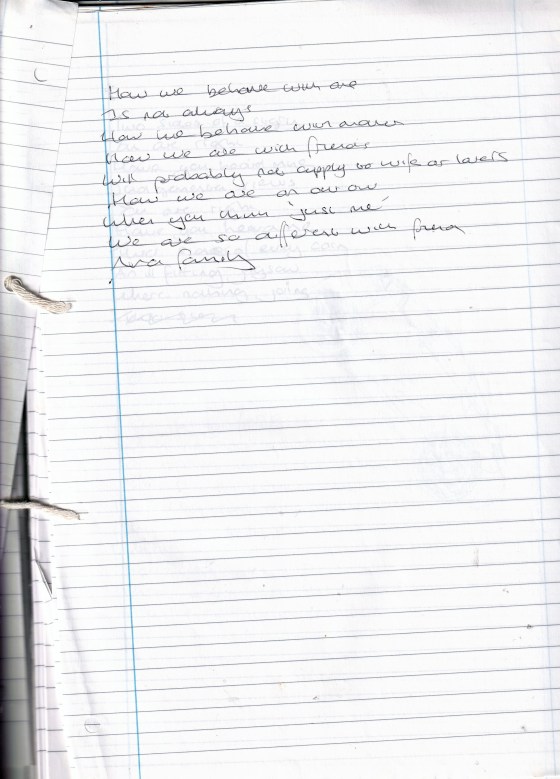 How we behave with one
Is not always
How we behave with another
How we are with friends
Will probably not apply to wife or lovers
How we are on our own
When you think 'just me'
We are so different with friend
And family